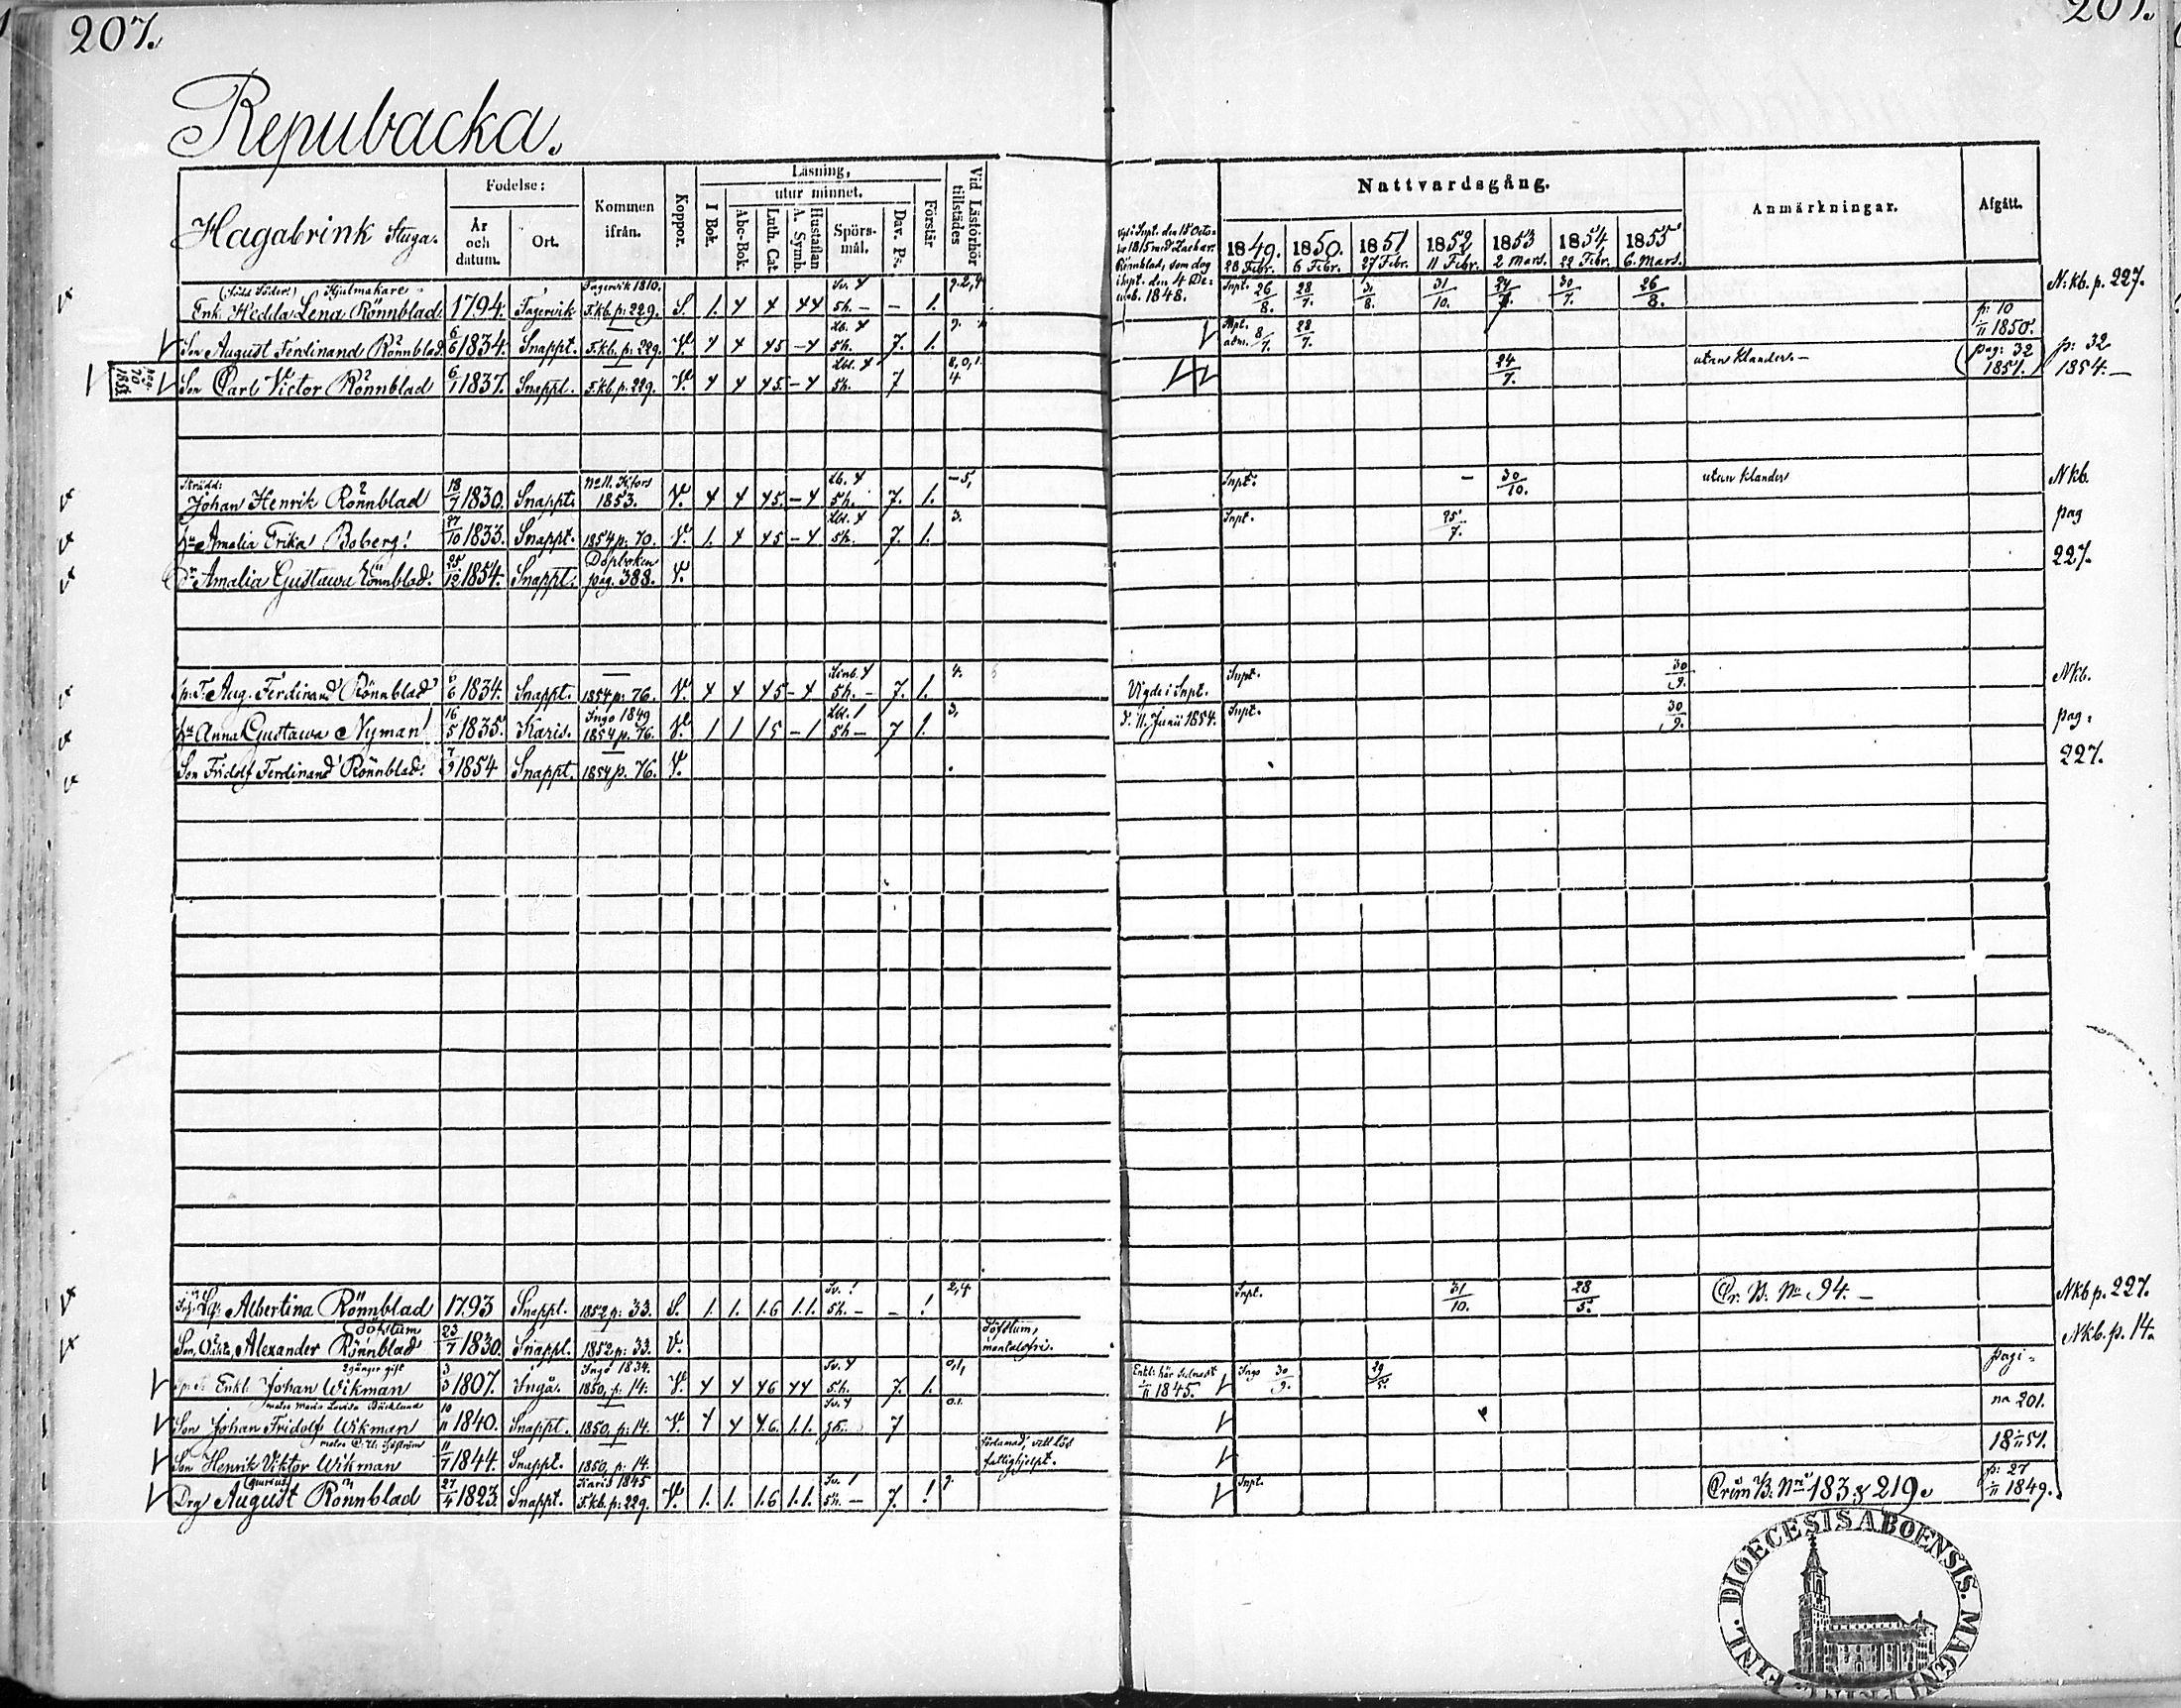 207.
207.
Repubacka.
Hagabrink Stuga.
Födelse:
År och datum.
Ort.
Kommen ifrån.
Koppor.
Läsning,
utur minnet.
I Bok.
Abc-Bok.
Luth. Cat.
Hustaflan A. Symb.
Spörs-mål.
Dav. Ps.
Förstår
Vid Läsförhör tillstädes
Nattvardsgång.
1849. 1850. 1851 1852 1853 1854 1855
28 Febr. 6 Febr. 27 Febr. 11 Febr. 2 Mars. 22 Febr. 6. Mars.
Anmärkningar.
Afgått.
Vigd i Snpt. den 18 Octo-
ber 1815 med Zachar.
Rönnblad, som dog
i Snpt. den 4 De-
cemb. 1848.
(född Söder.) Hjulmakare Fagervik 1810. Sv. 4 9.2,4 Snpt.
Enk. Hedda Lena Rönnblad 1794. Fagervik F.kb. p: 229. S. 1. 4 4 44 5h. – – 1. 26/8. 28/7. 31/8. 31/10. 30/7. 26/8. N:kb. p. 227.
Son August Ferdinand Rönnblad. 6/6 1834. Snappt. F.kb. p: 229. V. 4 4 45 – 4 5h. 7. 1. Snpt. adm. 8/7. 28/7. p: 10 1850.
pag: 70 1853
Son Carl Victor Rönnblad 6/1 1837. Snappt. F.kb. p: 229. V. 4 4 45 – 4 5h. 7 24/7. utan klander. – (pag: 32 1851.) p: 32 1854. –
Johan Henrik Rönnblad 18/7 1830. Snappt. 1853. V. 4 4 45. – 4 5h. 7. 1. – 5, Snpt. – 30/10. utan klander Nkb.
Amalia Erika Boberg 27/10 1833. Snappt. 1854 p: 70. V. 1. 4 45 – 4 5h. 7. 1. 3. Snpt. 25/7. pag
Amalia Gustava Rönnblad. 25/12 1854. Snappt. Dopboken pag. 388. V. 227.
Aug. Ferdinand Rönnblad 6/6 1834. Snappt. 1854 p: 76. V. 4 4 45 – 4 5h. – 7. 1. 4. Vigde i Snpt. Snpt. 30/9. Nkb.
Anna Gustava Nyman 16/5 1835. Karis. Ingo 1849 1854 p. 76. V. 1 1 15 – 1 5h – 7 1. 3, d. 11. Junii 1854. Snpt. 30/9. pag.
Son Fridolf Ferdinand Rönnblad. 7/9 1854 Snappt. 1854 p. 76. V. 227.
Albertina Rönnblad 1793 Snappt. 1852 p: 33. S. 1. 1. 1.6 1.1. 5h. – – ! 2,4 Snpt. 31/10. 28/5. Cr. B. No 94. – Nkb p. 227.
Döfstum
Son, Alexander Rönnblad 23/7 1830. Snappt. 1852 p: 33. V. Döfstum, mantalsfri. Nkb. p. 14.
2 gånger gift Ingo 1834. Sv. 4
Enkl: Johan Wikman 3/3 1807. Ingå. 1850, p: 14: V. 4 4 46 44 5h. 7. 1. 0,1, 1845. Ingo 30/9. 29/5. pagi-
mater Maria Lovisa Bäcklund
Son Johan Fridolf Wikman 10/11 1840. Snappt. 1850, p: 14. V. 4 4 4.6. 1.1. 7 0.1. na 201.
Son Henrik Viktor Wikman 11/7 1844. Snappt. 1850, p: 14. fattighjelpt. 1851.
Drg August Rönnblad 27/4 1823 Snappt. Karis 1845 F.kb. p: 229. V. 1. 1. 1.6 1.1. 5h. – 7. ! 9. Snpt. Crim B. Nris 183. & 219. p: 27 1849.
FINL. DIOECESIS ABOENSIS. MAGNI